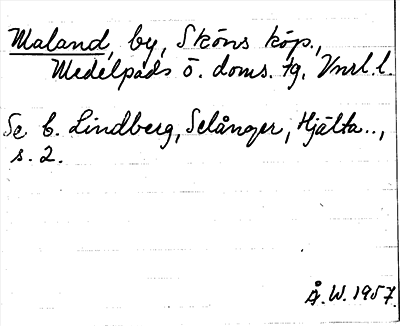 Maland, by, Sköns köp.,
Medelpads ö. doms. tg. Vnrl. l.
Se C. Lindberg, Selånger, Hjälta..,
s. 2.
Å. W. 1957.